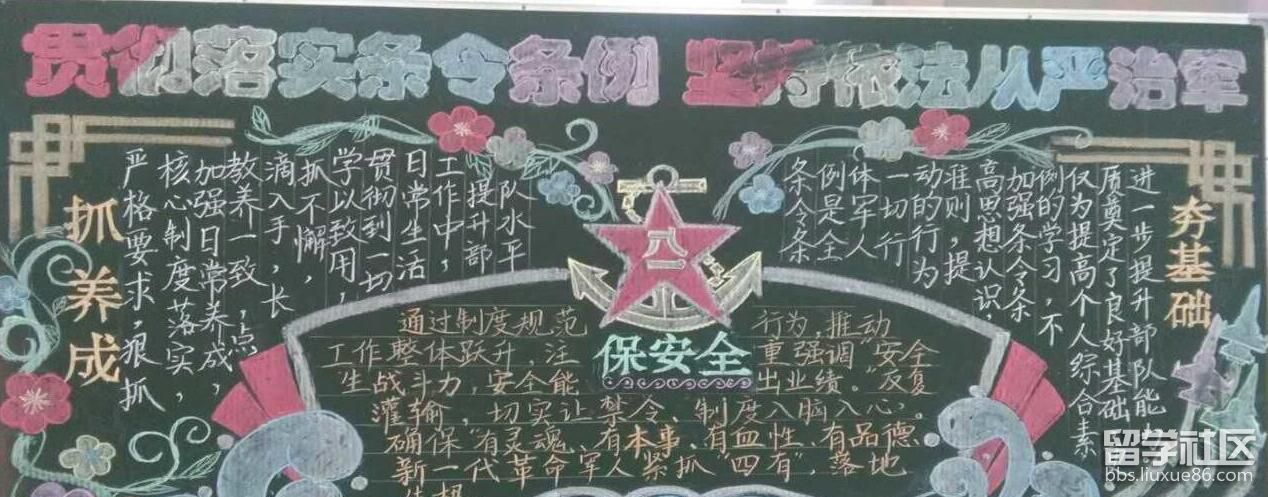 贯彻落实条令条例 坚持依法从严治军
抓养成
严格要求,狠抓
核心制度落实,
加强日常养成,
教养一致,点
滴入手,长
抓不懈,
学以致用,
贯彻到一切
日常生活
工作中,
提升部
队水平
八一
保安全
通过制度规范行为,推动
工作整体跃升,注重强调“安全
生战斗力,安全能出业绩。”反复
灌输,切实让禁令、制度入脑入心。
确保“有灵魂、有本事、有血性、有品德
新一代革命军人紧抓“四有”,落地
条令条
例是全
体军人
一切行
动的行为
准则,提
高思想认识,
加强条令条
例的学习,不
仅为提高个人综合素
质奠定了良好基础
进一步提升部队能
夯基础
留学社区
bbs.liuxue86.com